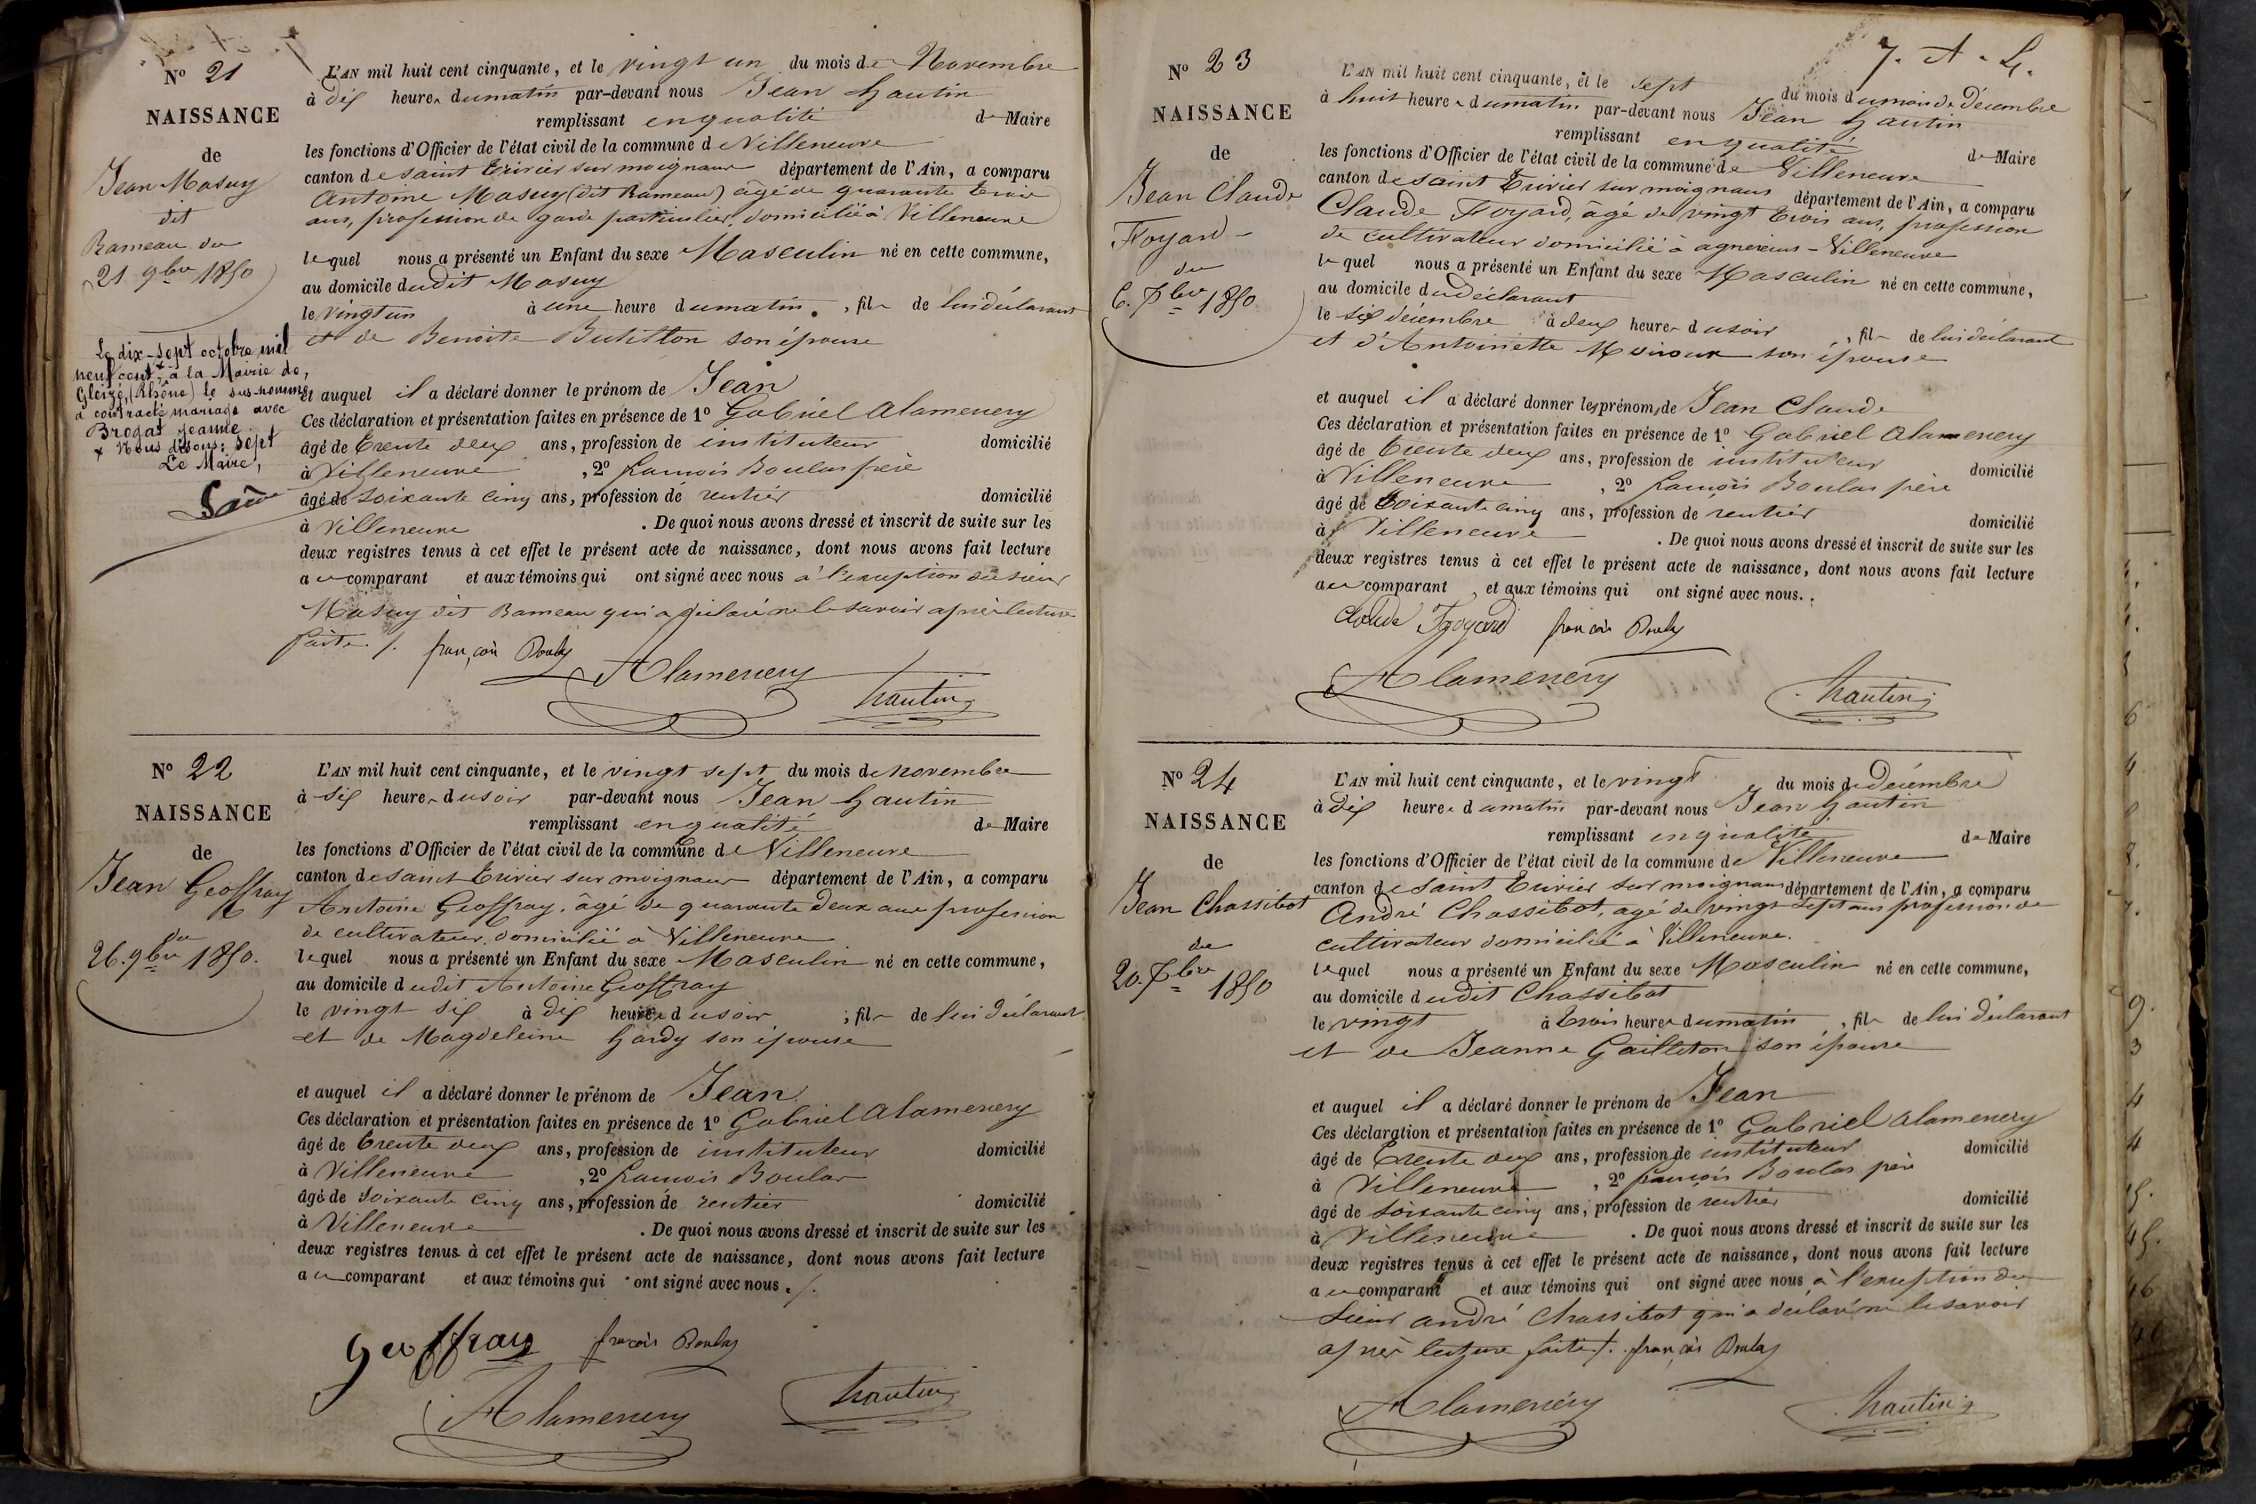 N° 21
NAISSANCE
de
Jean Masuy
dit
Rameau du
21 9bre 1850
Le dix-sept octobre mil
neuf cent, + à la Mairie de
Gleizé, (Rhône) le sus-nommé
a contracté mariage avec
Brogat Jeanne.
+ Nous disons: sept
Le Maire,
L'AN mil huit cent cinquante, et le vingt un du mois de Novembre
à dix heures du matin par-devant nous Jean Hautin
remplissant en qualité de Maire
les fonctions d'Officier de l'état civil de la commune de Villeneuve
canton de saint Trivier sur moignans département de l'Ain, a comparu
Antoine Masuy (dit Rameau) âgé de quarante trois
ans, profession de garde particulier, domicilié à Villeneuve
lequel nous a présenté un Enfant du sexe Masculin né en cette commune,
au domicile dudit Masuy
le vingt un à une heure du matin, fils de lui déclarant
et de Benoite Butillon son épouse
et auquel il a déclaré donner le prénom de Jean
Ces déclaration et présentation faites en présence de 1° Gabriel Alamenery
âgé de trente deux ans, profession de instituteur domicilié
à Villeneuve, 2° francois Boulas père
âgé de soixante cinq ans, profession de rentier domicilié
à Villeneuve. De quoi nous avons dressé et inscrit de suite sur les
deux registres tenus à cet effet le présent acte de naissance, dont nous avons fait lecture
au comparant et aux témoins qui ont signé avec nous à l'exception du sieur
Masuy dit Rameau qui a déclaré ne le savoir après lecture
faite ./. françois Boulas
Alamenery
hautin
N° 22
NAISSANCE
de
Jean Geoffray
du
26. 9bre 1850.
L'AN mil huit cent cinquante, et le vingt sept du mois de novembre
à six heures du soir par-devant nous Jean Hautin
remplissant en qualité de Maire
les fonctions d'Officier de l'état civil de la commune de Villeneuve
canton de saint Trivier sur moignans département de l'Ain, a comparu
Antoine Geoffray, âgé de quarante deux ans profession
de cultivateur, domicilié à Villeneuve
lequel nous a présenté un Enfant du sexe Masculin né en cette commune,
au domicile dudit Antoine Geoffray
le vingt six à dix heures du soir, fils de lui déclarant
et de Magdeleine Hardy son épouse
et auquel il a déclaré donner le prénom de Jean
Ces déclaration et présentation faites en présence de 1° Gabriel Alamenery
âgé de trente deux ans, profession de instituteur domicilié
à Villeneuve, 2° francois Boulas
âgé de soixante cinq ans, profession de rentier domicilié
à Villeneuve. De quoi nous avons dressé et inscrit de suite sur les
deux registres tenus à cet effet le présent acte de naissance, dont nous avons fait lecture
au comparant et aux témoins qui ont signé avec nous ./.
Geoffray françois Boulas
Alamenery
hautin
7. A. L.
N° 23
NAISSANCE
de
Jean Claude
Foyard
du
6. Xbre 1850
L'AN mil huit cent cinquante, et le sept du mois du mois de Décembre
à huit heures du matin par-devant nous Jean Hautin
remplissant en qualité de Maire
les fonctions d'Officier de l'état civil de la commune de Villeneuve
canton de saint Trivier sur moignans département de l'Ain, a comparu
Claude Foyard, âgé de vingt trois ans, profession
de cultivateur domicilié à agnereins-Villeneuve
lequel nous a présenté un Enfant du sexe Masculin né en cette commune,
au domicile du déclarant
le six décembre à deux heures du soir, fils de lui déclarant
et d'Antoinette son épouse
et auquel il a déclaré donner les prénoms de Jean Claude
Ces déclaration et présentation faites en présence de 1° Gabriel Alamenery
âgé de trente deux ans, profession de instituteur domicilié
à Villeneuve, 2° françois Boulas père
âgé de soixante cinq ans, profession de rentier domicilié
à Villeneuve. De quoi nous avons dressé et inscrit de suite sur les
deux registres tenus à cet effet le présent acte de naissance, dont nous avons fait lecture
au comparant, et aux témoins qui ont signé avec nous.
Claude Foyard françois Boulas
Alamenery
hautin
N° 24
NAISSANCE
de
Jean Chassibot
du
20. Xbre 1850
L'AN mil huit cent cinquante, et le vingt du mois de décembre
à dix heures du matin par-devant nous Jean Hautin
remplissant en qualité de Maire
les fonctions d'Officier de l'état civil de la commune de Villeneuve
canton de saint Trivier sur moignans département de l'Ain, a comparu
André Chassibot, agé de vingt sept ans profession de
cultivateur domicilié à Villeneuve.
lequel nous a présenté un Enfant du sexe Masculin né en cette commune,
au domicile dudit Chassibot
le vingt à trois heures du matin, fils de lui déclarant
et de Jeanne Gailleton son épouse
et auquel il a déclaré donner le prénom de Jean
Ces déclaration et présentation faites en présence de 1° Gabriel Alamenery
âgé de trente deux ans, profession de instituteur domicilié
à Villeneuve, 2° françois Boulas père
âgé de soixante cinq ans, profession de rentier domicilié
à Villeneuve. De quoi nous avons dressé et inscrit de suite sur les
deux registres tenus à cet effet le présent acte de naissance, dont nous avons fait lecture
au comparant et aux témoins qui ont signé avec nous à l'exception du
sieur andré Chassibot qui a déclaré ne le savoir
après lecture faite ./. françois Boulas
Alamenery
hautin